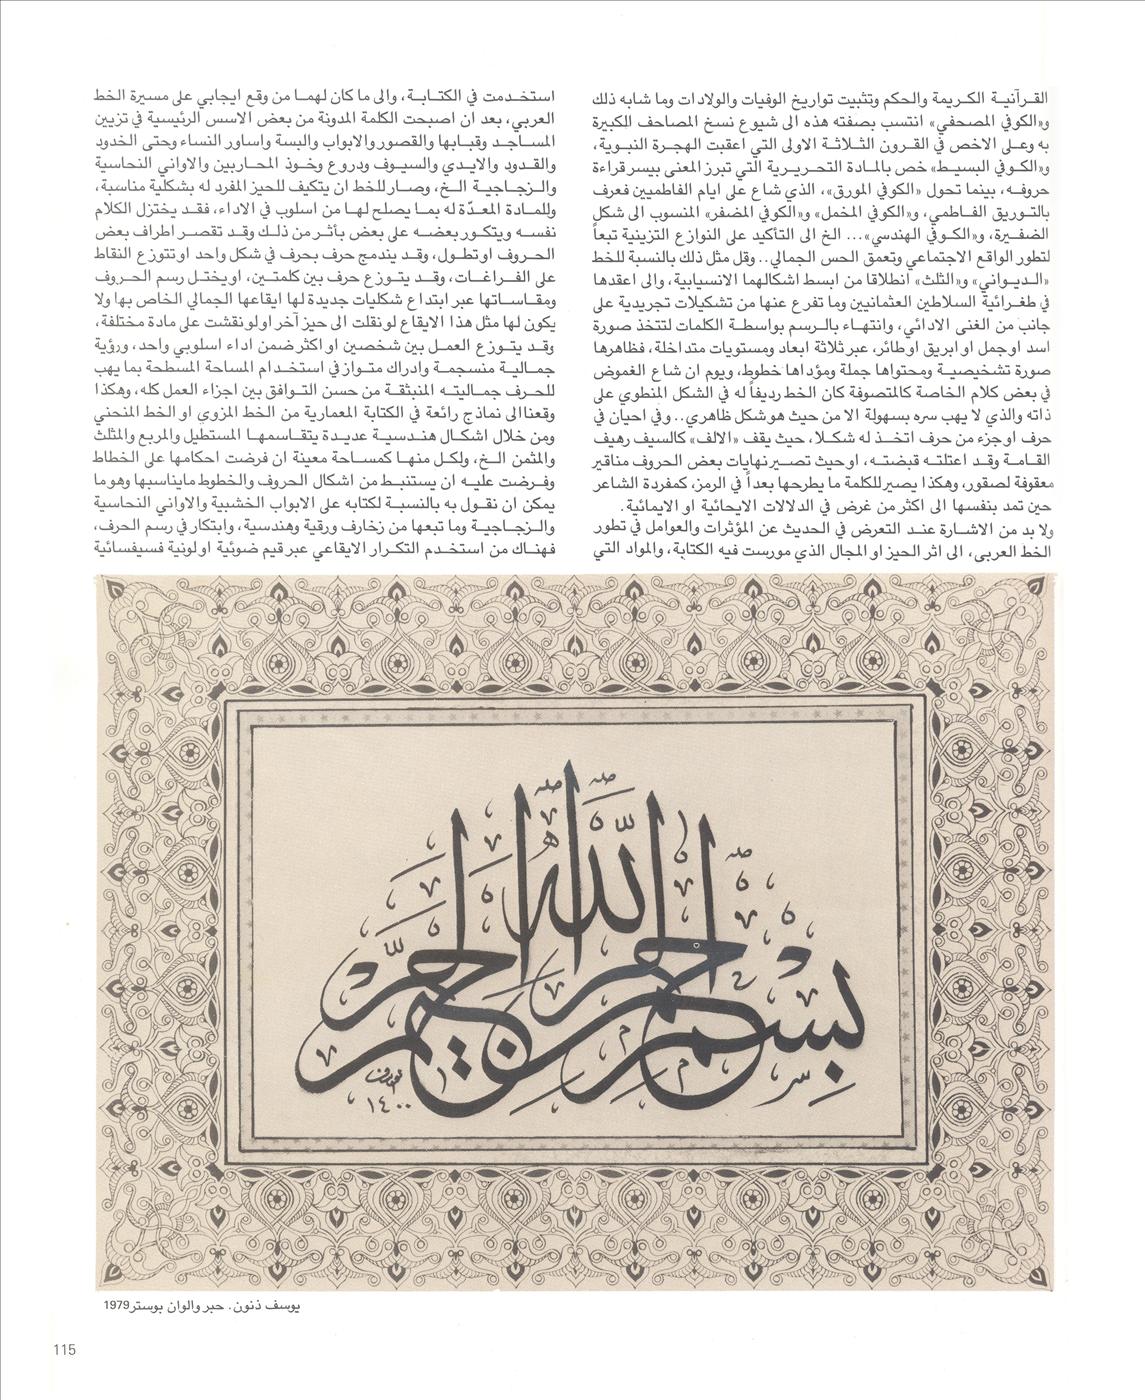 القرآنية الكريمة والحكم وتثبيت تواريخ الوفيات والولادات وما شابه ذلك
و«الكوفي المصحفي» انتسب بصفته هذه الى شيوع نسخ المصاحف الكبيرة
به وعلى الاخص في القرون الثلاثة الاولى التي اعقبت الهجرة النبوية،
و«الكوفي البسيط» خص بالمادة التحريرية التي تبرز المعنى بيسر قراءة
حروفه، بينما تحول «الكوفي المورق»، الذي شاع على ايام الفاطميين فعرف
بالتوريق الفاطمي، و«الكوفي المخمل» و«الكوفي المضفر» المنسوب الى شكل
الضفيرة، و«الكوفي الهندسي»... الخ الى التأكيد على النوازع التزينية تبعاً
لتطور الواقع الاجتماعي وتعمق الحس الجمالي.. وقل مثل ذلك بالنسبة للخط
«الديواني» و«الثلث» انطلاقا من ابسط اشكالهما الانسيابية، والى اعقدها
في طغرائية السلاطين العثمانيين وما تفرع عنها من تشكيلات تجريدية على
جانب من الغنى الادائي، وانتهاء بالرسم بواسطة الكلمات لتتخذ صورة
اسد او جمل او ابريق او طائر، عبر ثلاثة ابعاد ومستويات متداخلة، فظاهرها
صورة تشخيصية ومحتواها جملة ومؤداها خطوط، ويوم ان شاع الغموض
في بعض كلام الخاصة كالمتصوفة كان الخط رديفاً له في الشكل المنطوي على
ذاته والذي لا يهب سره بسهولة الا من حيث هو شكل ظاهري.. وفي احيان في
حرف او جزء من حرف اتخذ له شكلا، حيث يقف «الالف» كالسيف رهيف
القامة وقد اعتلته قبضته، او حيث تصير نهايات بعض الحروف مناقير
معقوفة لصقور، وهكذا يصير للكلمة ما يطرحها بعداً في الرمز، كمفردة الشاعر
حين تمد بنفسها الى اكثر من غرض في الدلالات الايحائية او الايمائية.
ولا بد من الاشارة عند التعرض في الحديث عن المؤثرات والعوامل في تطور
الخط العربي، الى اثر الحيز او المجال الذي مورست فيه الكتابة، والمواد التي
استخدمت في الكتابة، والى ما كان لهما من وقع ايجابي على مسيرة الخط
العربي، بعد ان اصبحت الكلمة المدونة من بعض الاسس الرئيسية في تزيين
المساجد وقبابها والقصور والابواب والبسة واساور النساء وحتى الخدود
والقدود والايدي والسيوف ودروع وخوذ المحاربين والاواني النحاسية
والزجاجية الخ، وصار للخط ان يتكيف للحيز المفرد له بشكلية مناسبة،
وللمادة المعدّة له بما يصلح لها من اسلوب في الاداء، فقد يختزل الكلام
نفسه ويتكور بعضه على بعض بأثر من ذلك وقد تقصر اطراف بعض
الحروف او تطول، وقد يندمج حرف بحرف في شكل واحد او تتوزع النقاط
على الفراغات، وقد يتوزع حرف بين كلمتين، او يختل رسم الحروف
ومقاساتها عبر ابتداع شكليات جديدة لها ايقاعها الجمالي الخاص بها ولا
يكون لها مثل هذا الايقاع لو نقلت الى حيز آخر او لو نقشت على مادة مختلفة،
وقد يتوزع العمل بين شخصين او اكثر ضمن اداء اسلوبي واحد، ورؤية
جمالية منسجمة وادراك متواز في استخدام المساحة المسطحة بما يهب
للحرف جماليته المنبثقة من حسن التوافق بين اجزاء العمل كله، وهكذا
وقعنا الى نماذج رائعة في الكتابة المعمارية من الخط المزوي او الخط المنحني
ومن خلال اشكال هندسية عديدة يتقاسمها المستطيل والمربع والمثلث
والمثمن الخ، ولكل منها كمساحة معينة ان فرضت احكامها على الخطاط
وفرضت عليه ان يستنبط من اشكال الحروف والخطوط مايناسبها وهو ما
يمكن ان نقول به بالنسبة لكتابه على الابواب الخشبية والاواني النحاسية
والزجاجية وما تبعها من زخارف ورقية وهندسية، وابتكار في رسم الحرف،
فهناك من استخدم التكرار الايقاعي عبر قيم ضوئية او لونية فسيفسائية
بِسْمِ اللَّهِ الرَّحْمٰنِ الرَّحِيمِ
١٤٠٠
يوسف ذنون. حبر والوان بوستر 1979
115